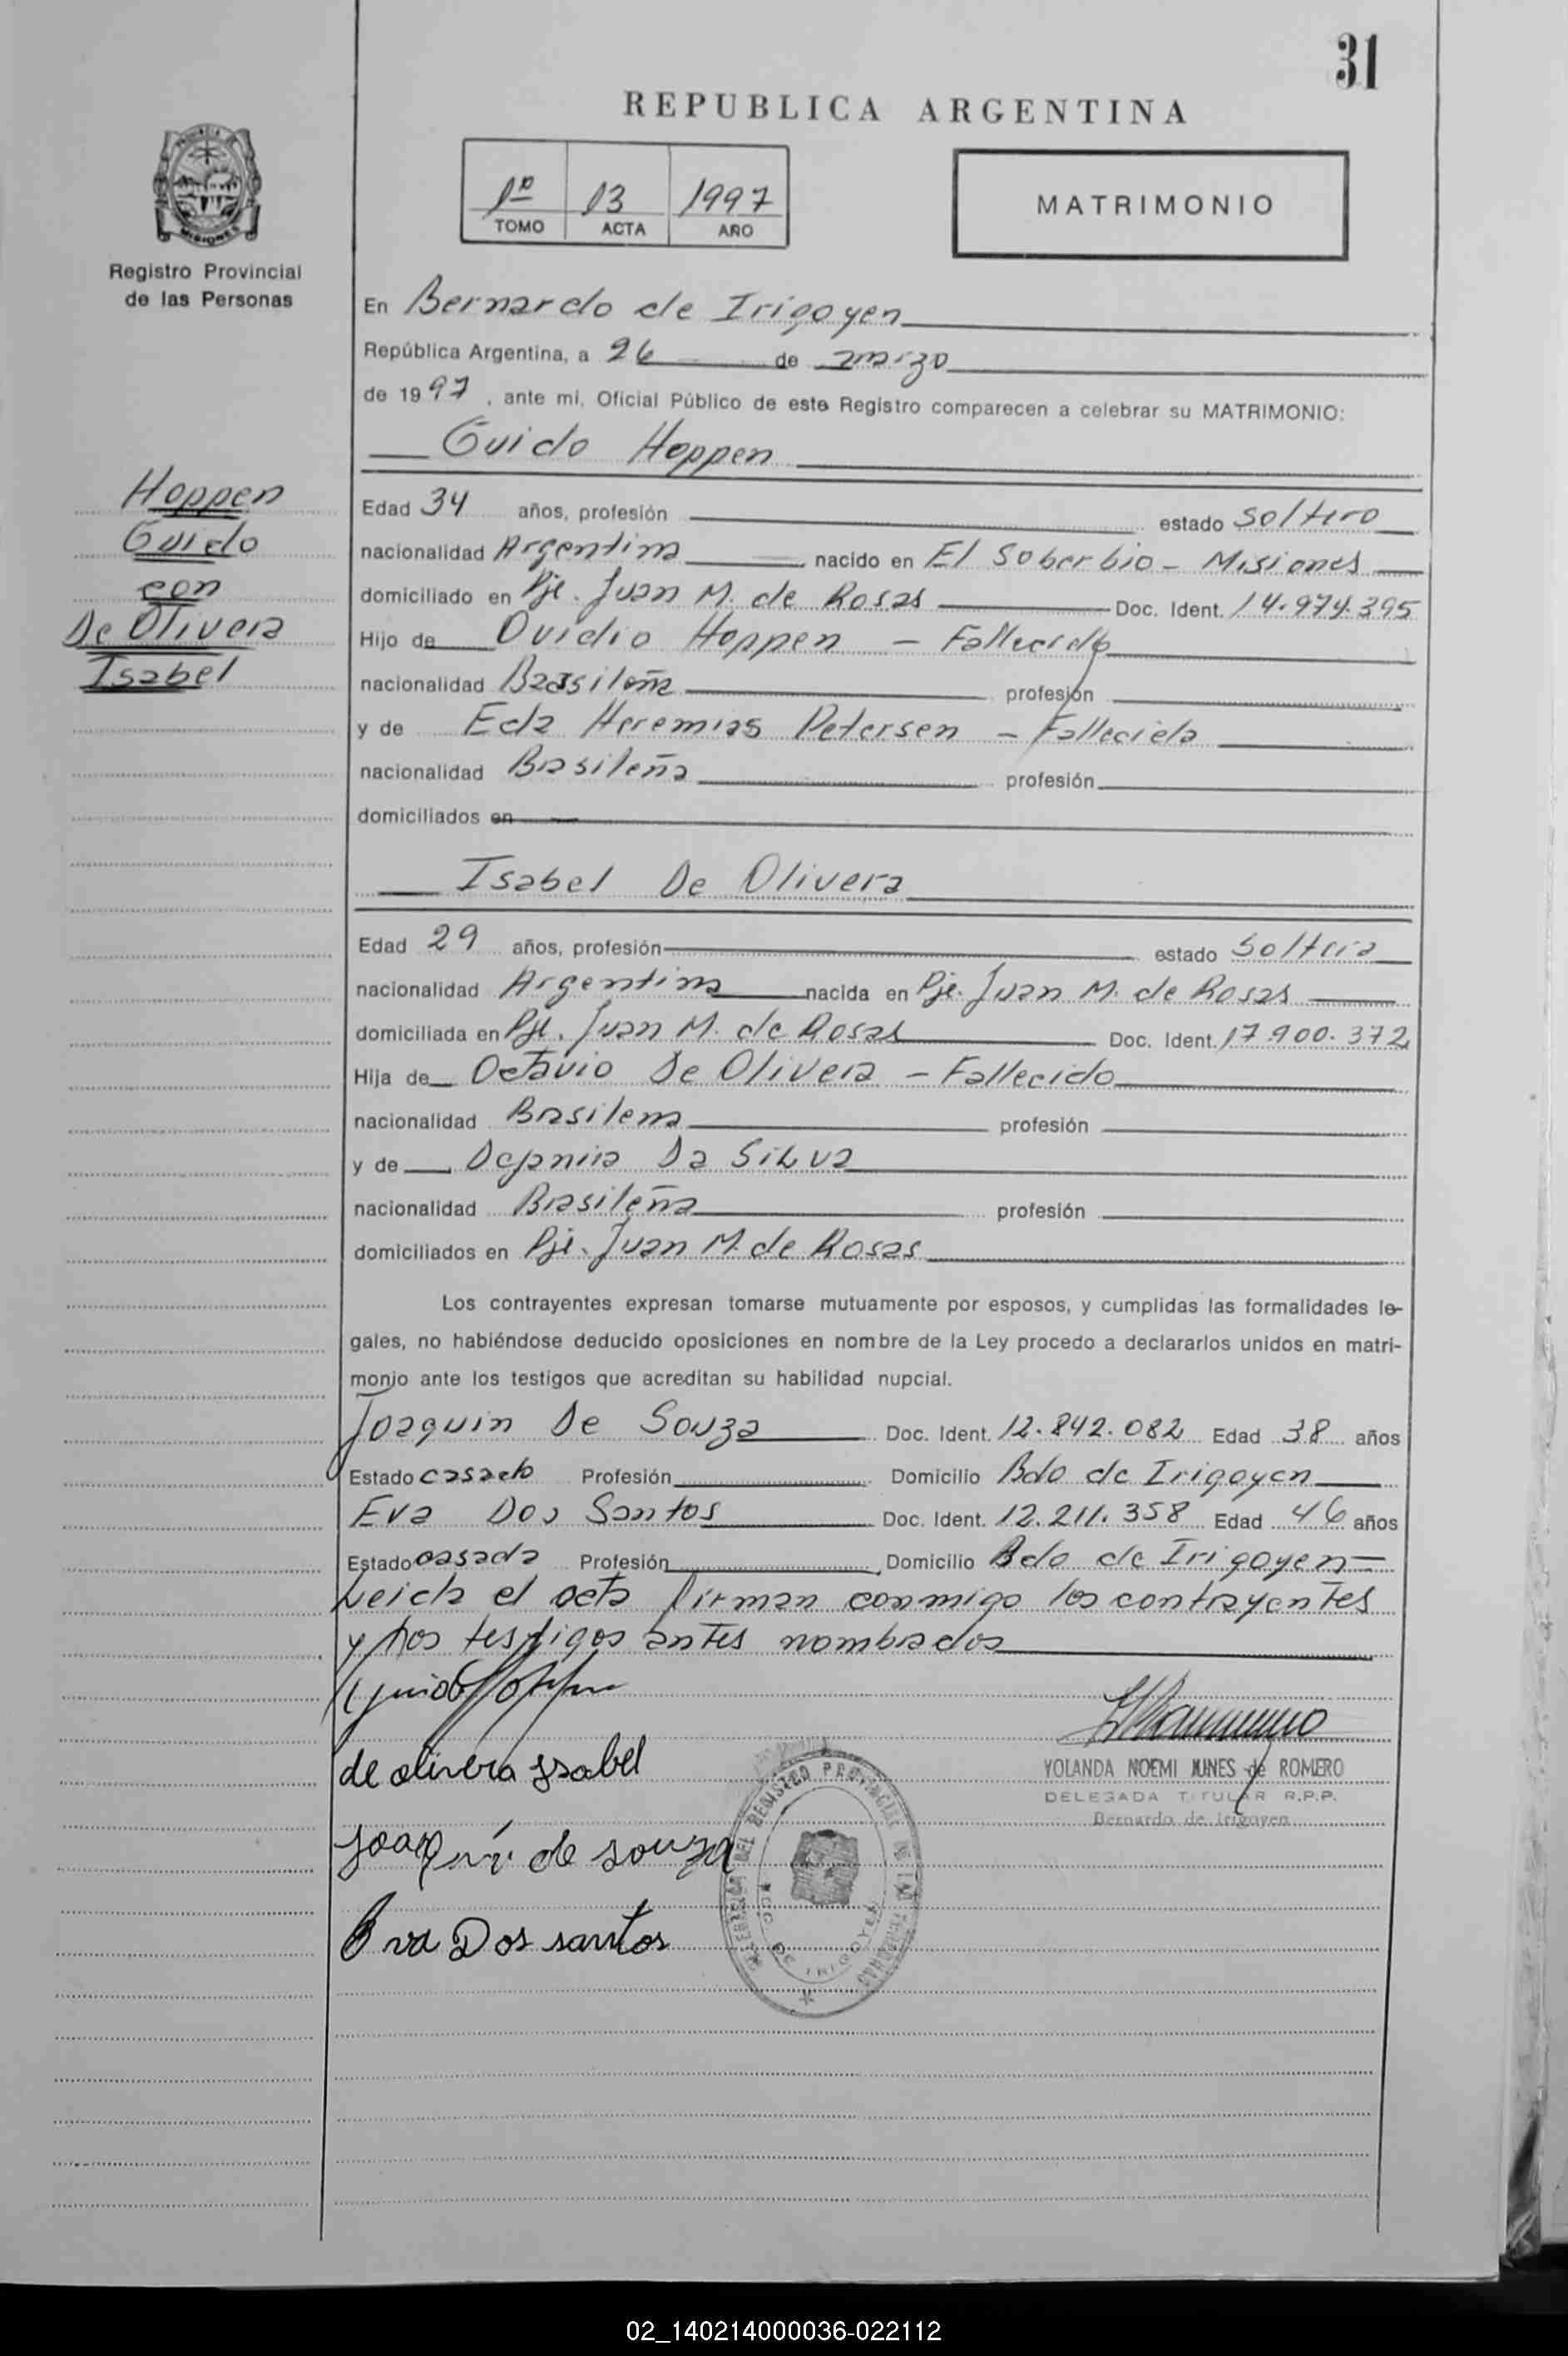 31
REPUBLICA ARGENTINA
1º 13 1997
TOMO ACTA AÑO
MATRIMONIO
MISIONES
Registro Provincial
de las Personas
En Bernardo de Irigoyen
República Argentina, a 26 de marzo
de 1997, ante mi, Oficial Público de este Registro comparecen a celebrar su MATRIMONIO:
Guido Hoppen
Hoppen
Guido
con
De Olivera
Isabel
Edad 34 años, profesión estado soltero
nacionalidad Argentina nacido en El Soberbio - Misiones
domiciliado en Pje. Juan M. de Rosas Doc. Ident. 14.974.395
Hijo de Ovidio Hoppen - Fallecido
nacionalidad Brasileña profesión
y de Eda Heremias Petersen - Fallecida
nacionalidad Brasileña profesión
domiciliados en
Isabel De Olivera
Edad 29 años, profesión estado Soltera
nacionalidad Argentina nacida en Pje. Juan M. de Rosas
domiciliada en Pje. Juan M. de Rosas Doc. Ident. 17.900.372
Hija de Octavio De Olivera - Fallecido
nacionalidad Brasilena profesión
y de Dejanira Da Silva
nacionalidad Brasileña profesión
domiciliados en Pje. Juan M. de Rosas
Los contrayentes expresan tomarse mutuamente por esposos, y cumplidas las formalidades le-
gales, no habiéndose deducido oposiciones en nombre de la Ley procedo a declararlos unidos en matri-
monio ante los testigos que acreditan su habilidad nupcial.
Joaquin De Souza Doc. Ident. 12.842.082 Edad 38 años
Estado casado Profesión Domicilio Bdo de Irigoyen
Eva Dos Santos Doc. Ident. 12.211.358 Edad 46 años
Estado casada Profesión Domicilio Bdo de Irigoyen
Leida el acta firman conmigo los contrayentes
y los testigos antes nombrados
Guido Hoppen
de olivera Isabel
YOLANDA NOEMI JUNES de ROMERO
DELEGADA TITULAR R.P.P.
Bernardo de Irigoyen
Joaquin de souza
Eva Dos santos
DEL REGISTRO PROVINCIAL DE LAS
BDO. DE IRIGOYEN
02_140214000036-022112